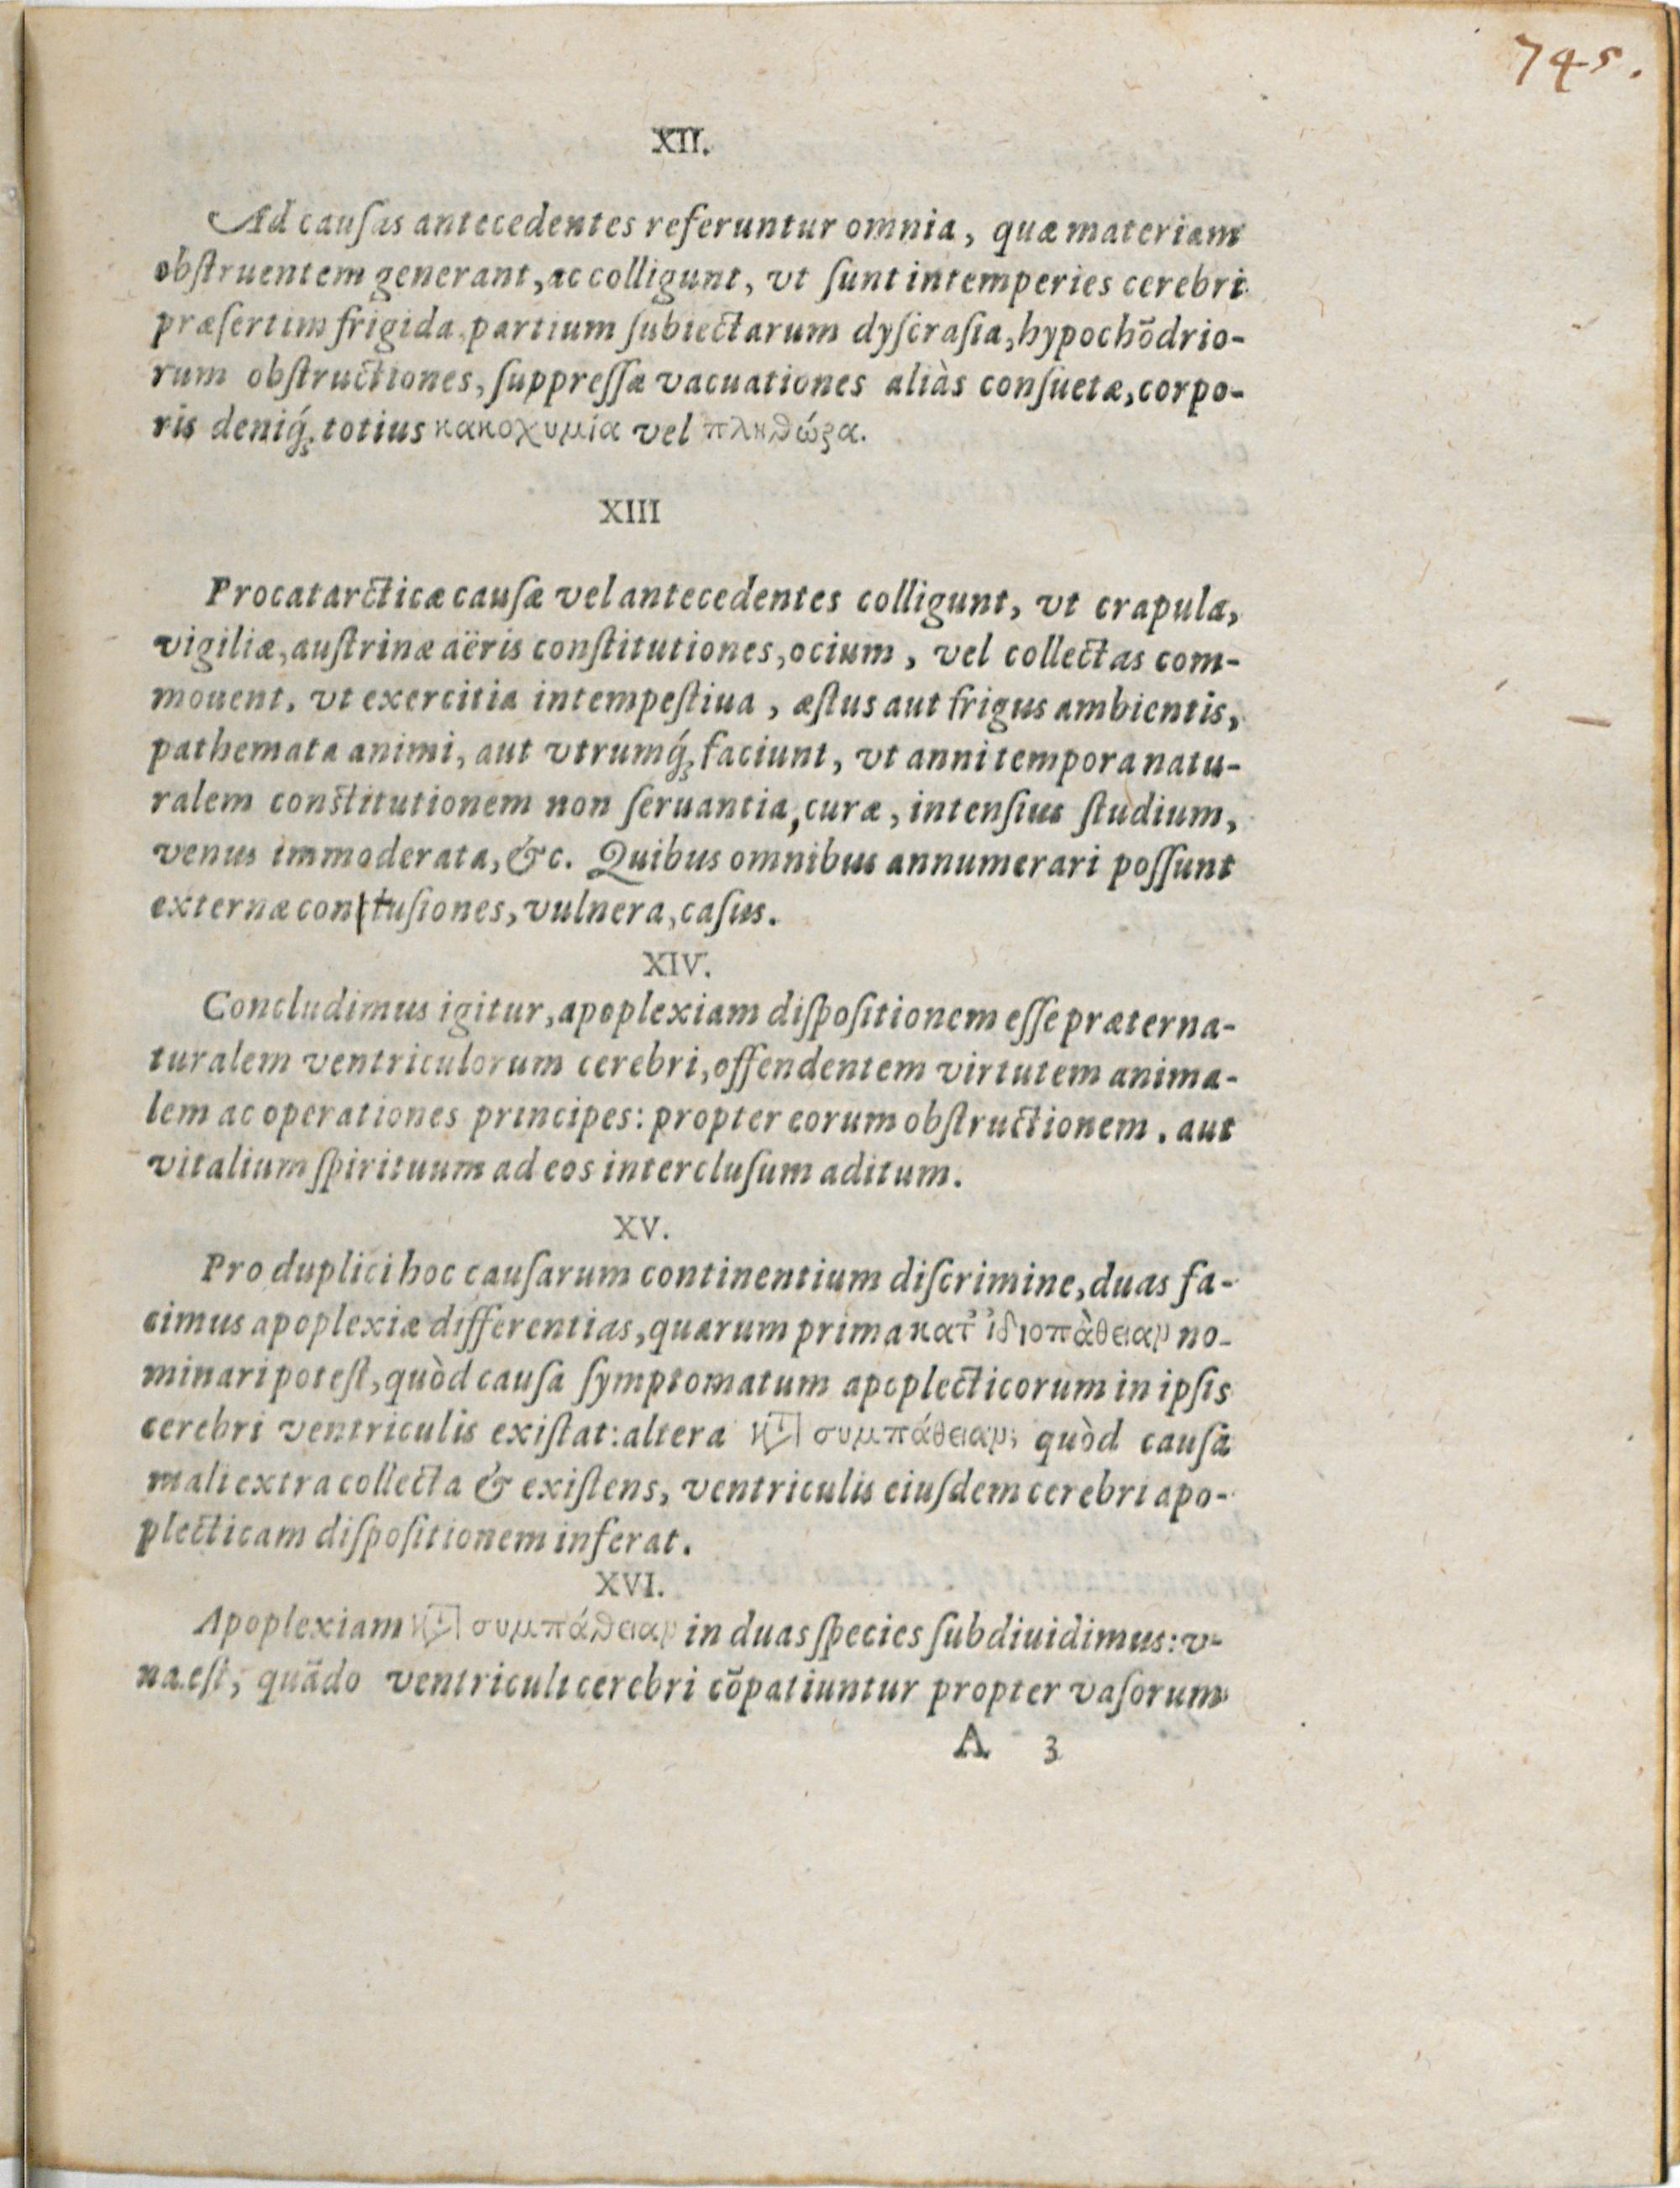 745.
XII.
Ad cauſas antecedentes referuntur omnia, quæ materiam
obſtruentem generant, ac colligunt, vt ſunt intemperies cerebri
præſertim frigida, partium ſubiectarum dyſcraſia, hypochõdrio-
rum obſtructiones, ſuppreſſæ vacuationes aliàs conſuetæ, corpo-
ris deniq́; totius κακοχυμία vel πληθώρα.
XIII
Procatarcticæ cauſæ vel antecedentes colligunt, vt crapula,
vigiliæ, auſtrinæ aëris conſtitutiones, ocium, vel collectas com-
mouent, vt exercitia intempeſtiua, æſtus aut frigus ambientis,
pathemata animi, aut vtrumq́; faciunt, vt anni tempora natu-
ralem conſtitutionem non ſeruantia, curæ, intenſius ſtudium,
venus immoderata, &c. Quibus omnibus annumerari poſſunt
externæ contuſiones, vulnera, caſus.
XIV.
Concludimus igitur, apoplexiam diſpoſitionem eſſe præterna-
turalem ventriculorum cerebri, offendentem virtutem anima-
lem ac operationes principes: propter eorum obſtructionem, aut
vitalium ſpirituum ad eos intercluſum aditum.
XV.
Pro duplici hoc cauſarum continentium diſcrimine, duas fa-
cimus apoplexiæ differentias, quarum prima κατ' ἰδιοπὰθειαν no-
minari poteſt, quòd cauſa ſymptomatum apoplecticorum in ipſis
cerebri ventriculis exiſtat: altera κατὰ συμπάθειαν, quòd cauſa
mali extra collecta & exiſtens, ventriculis eiuſdem cerebri apo-
plecticam diſpoſitionem inferat.
XVI.
Apoplexiam κατὰ συμπάθειαν in duas ſpecies ſubdiuidimus: v-
na eſt, quãdo ventriculi cerebri cõpatiuntur propter vaſorum
A 3